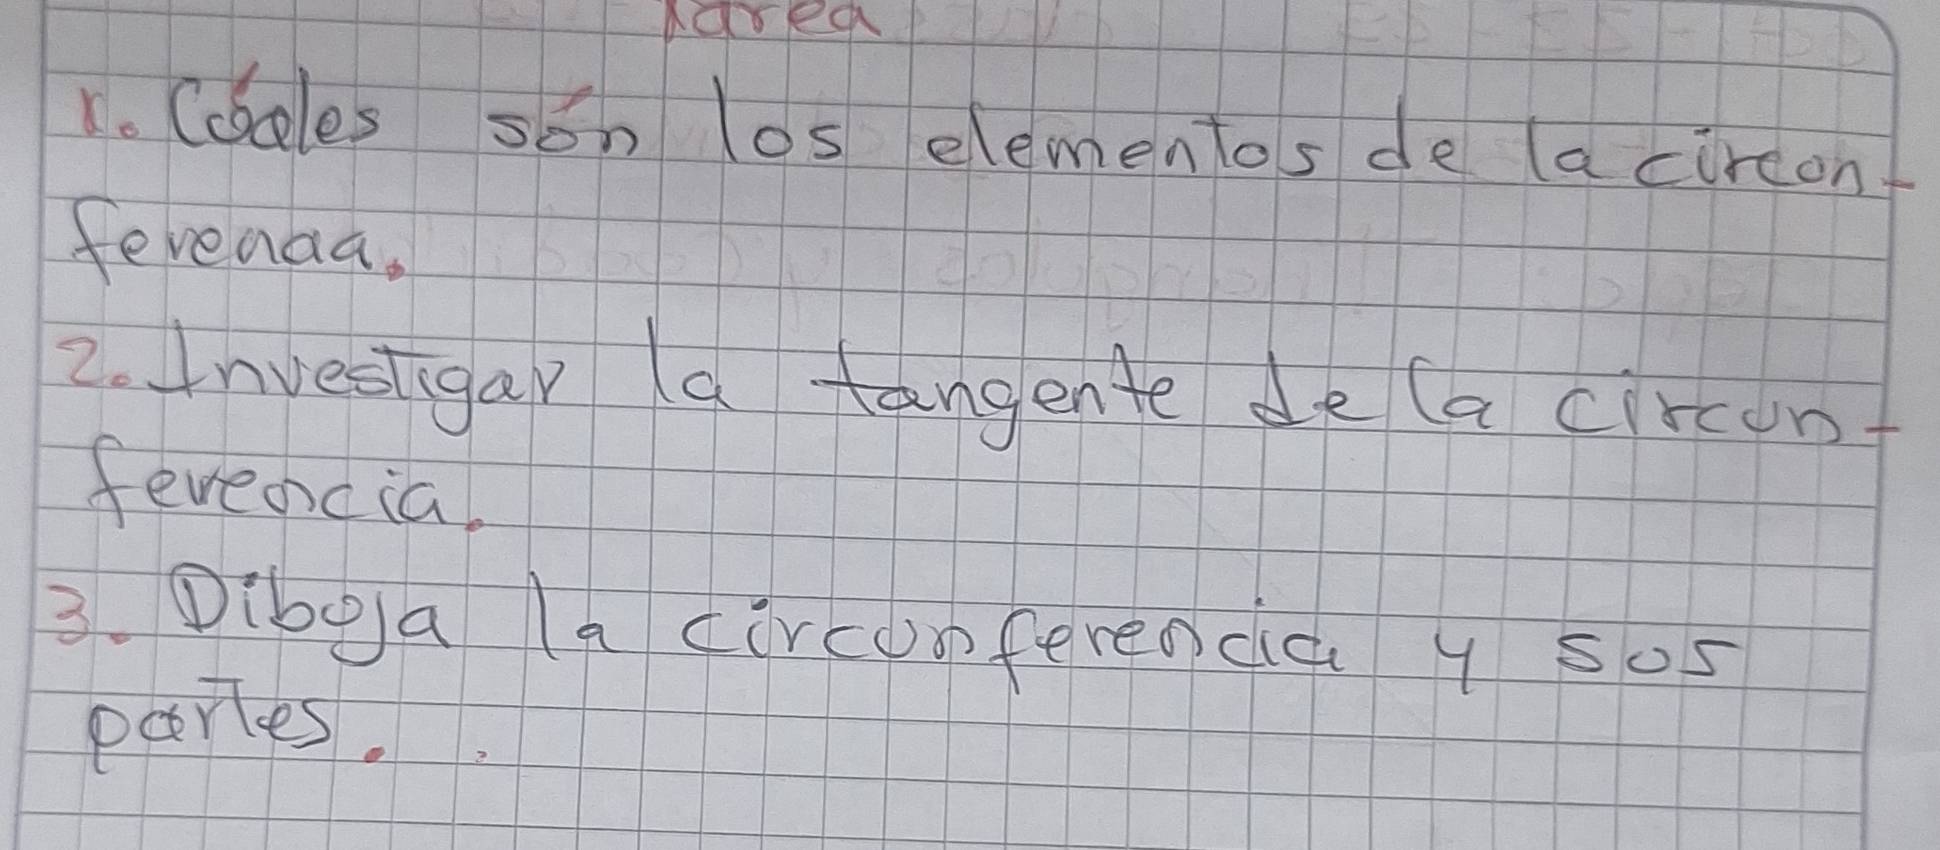 Tarea
1. Cúales són los elementos de la circun-
ferencia.
2. Investigar la tangente de la circun-
ferencia.
3. Dibuja la circunferencia y sus
partes.